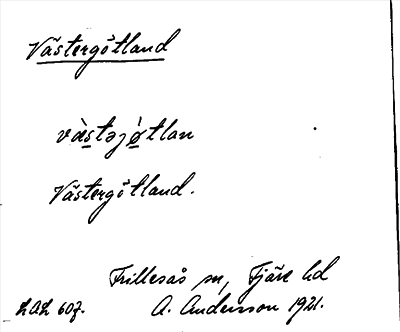 Västergötland
väst̲əjö̲tlan
Västergötland.
Frillesås sn, Fjäre hd
LAL 607. A. Andersson 1921.